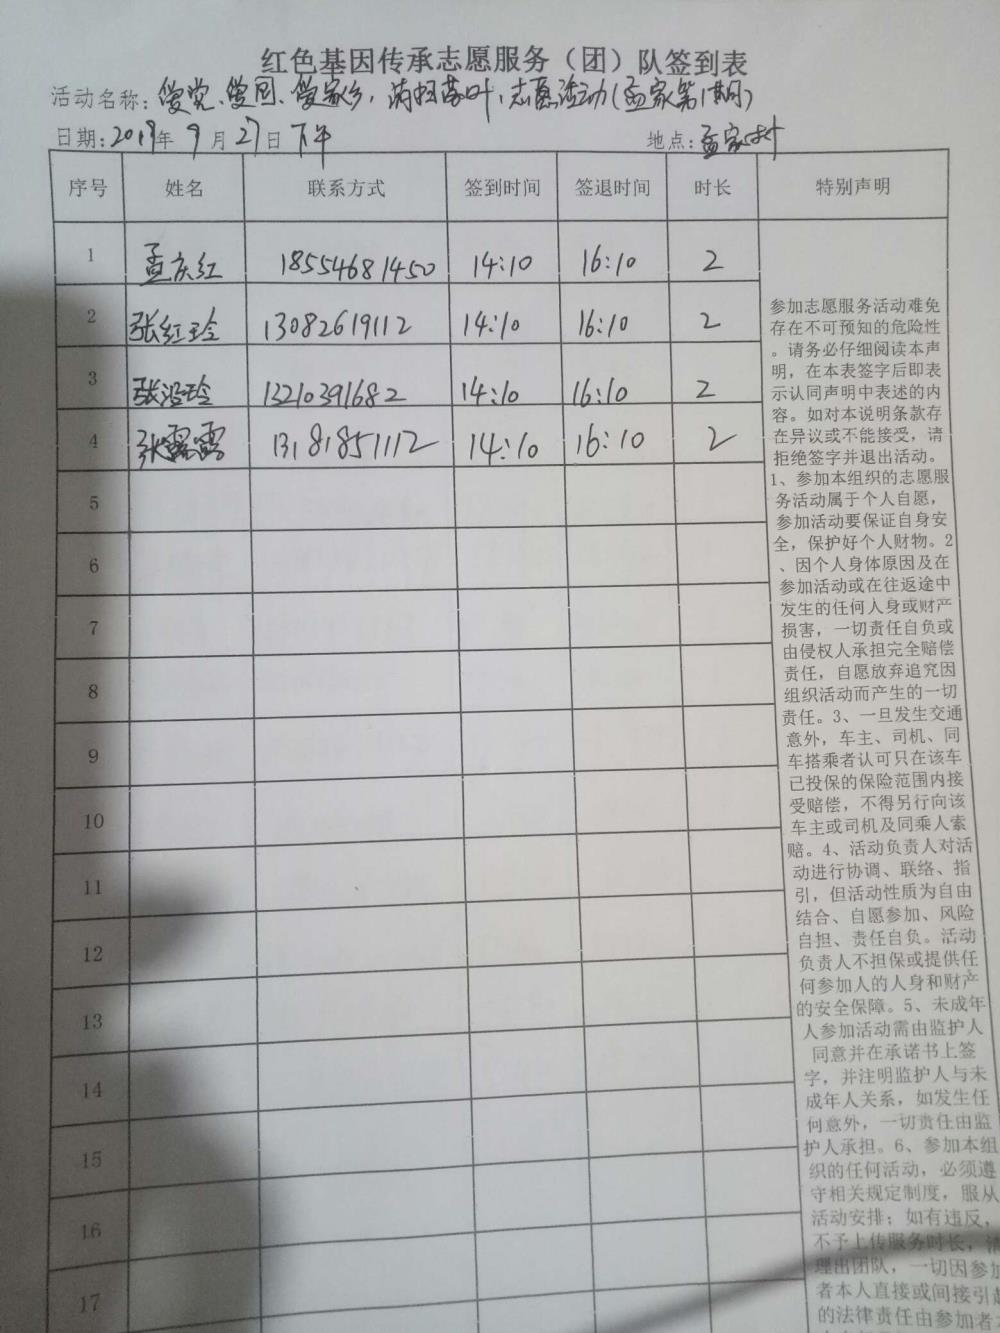 红色基因传承志愿服务（团）队签到表
活动名称：爱党、爱国、爱家乡，清扫落叶，志愿活动（孟家第1期）
日期：2019年9月27日下午 地点：孟家村
序号 姓名 联系方式 签到时间 签退时间 时长 特别声明
1 孟庆红 18554681450 14:10 16:10 2
2 张红玲 13082619112 14:10 16:10 2
3 张玲 13210391682 14:10 16:10 2
4 张露露 13181851112 14:10 16:10 2
5
6
7
8
9
10
11
12
13
14
15
16
17
参加志愿服务活动难免
存在不可预知的危险性
。请务必仔细阅读本声
明，在本表签字后即表
示认同声明中表述的内
容。如对本说明条款存
在异议或不能接受，请
拒绝签字并退出活动。
1、参加本组织的志愿服
务活动属于个人自愿，
参加活动要保证自身安
全，保护好个人财物。2
、因个人身体原因及在
参加活动或在往返途中
发生的任何人身或财产
损害，一切责任自负或
由侵权人承担完全赔偿
责任，自愿放弃追究因
组织活动而产生的一切
责任。3、一旦发生交通
意外，车主、司机、同
车搭乘者认可只在该车
已投保的保险范围内接
受赔偿，不得另行向该
车主或司机及同乘人索
赔。4、活动负责人对活
动进行协调、联络、指
引，但活动性质为自由
结合、自愿参加、风险
自担、责任自负。活动
负责人不担保或提供任
何参加人的人身和财产
的安全保障。5、未成年
人参加活动需由监护人
同意并在承诺书上签
字，并注明监护人与未
成年人关系，如发生任
何意外，一切责任由监
护人承担。6、参加本组
织的任何活动，必须遵
守相关规定制度，服从
活动安排；如有违反，
不予上传服务时长，清
理出团队，一切因参加
者本人直接或间接引起
的法律责任由参加者